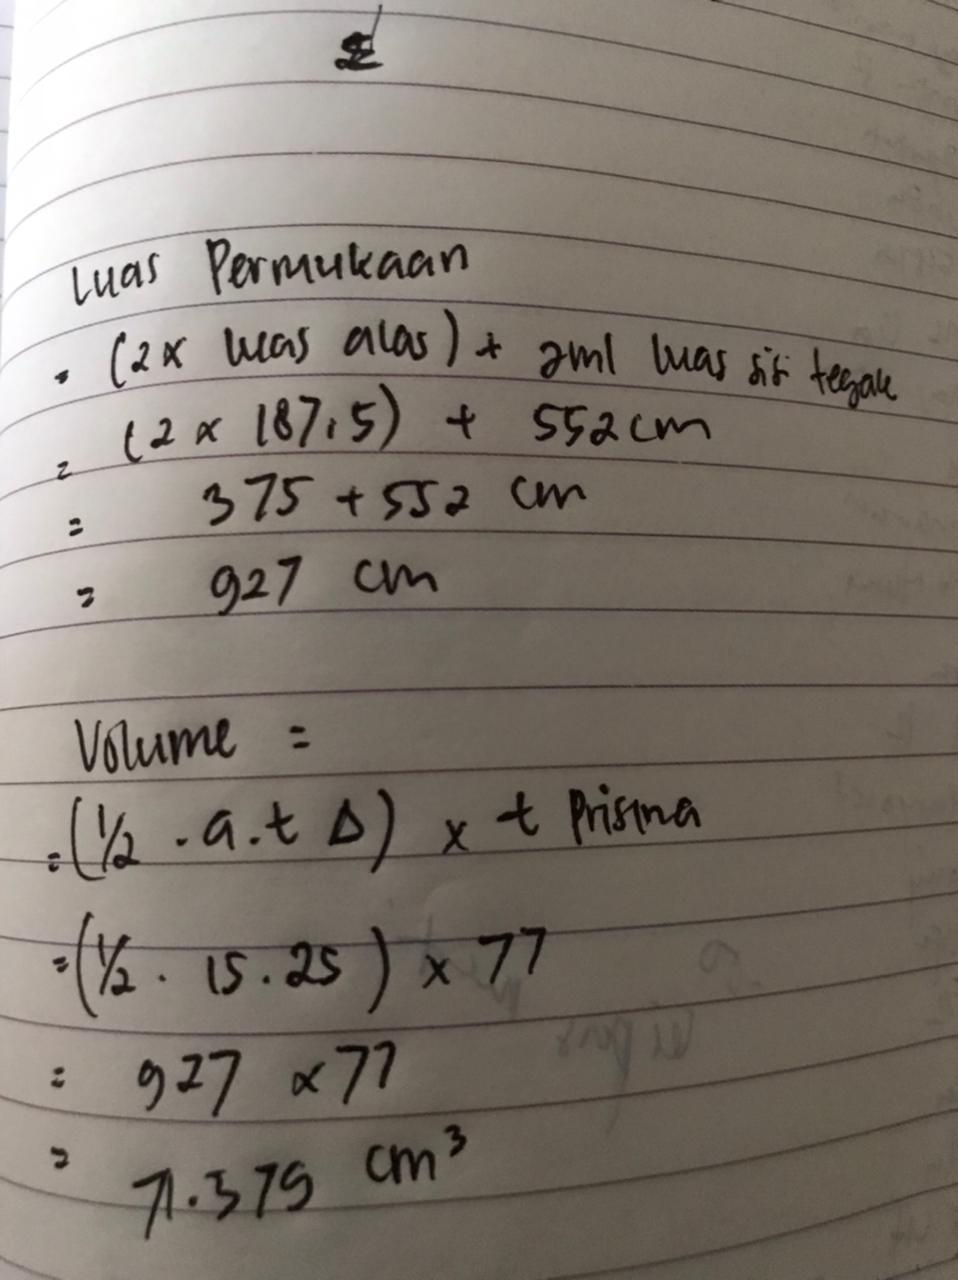 Luas Permukaan
= (2x luas alas) + jml luas sisi tegak
= (2 x 187,5) + 552 cm
= 375 + 552 cm
= 927 cm
Volume =
= (1/2 . a . t Δ) x t Prisma
= (1/2 . 15 . 25) x 77
= 927 x 77
= 71.379 cm³